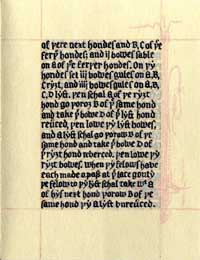 of yere next hondes and B, C of yͤ
ferrͬ hondes; and ij bowes sable
on a of yͤ ferryer hondes. On yͬ
hondes set iij bowes gules on a, B,
C ryȝt, and iiij bowes gules on a, B,
C, D lyft. yen schal a of yͤ ryȝt
hond go þorow B of yͤ same hond
and take þͤ bowe D of þͤ lyft hond
reversed, yen lowe yͬ lyft bowes,
and a lyft schal go þorow B of yͤ
same hond and take þͤ bowe D of
yͤ ryȝt hond reversed. yen lowe yͬ
ryȝt bowes. when yͬ felows have
each made a paß at place gouty
yͤ felow to yͬ lyft schal take wͭ a
of hys next hond þorow B of yͤ
same hond yͬ a lyft unreversed.